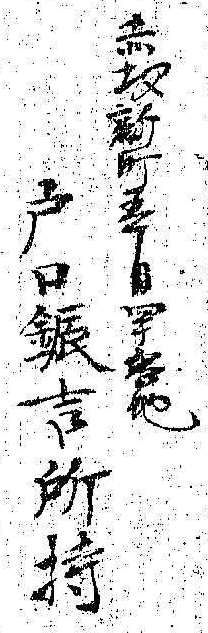 赤坂新町五丁目四十番地
戸口鋠吉所持